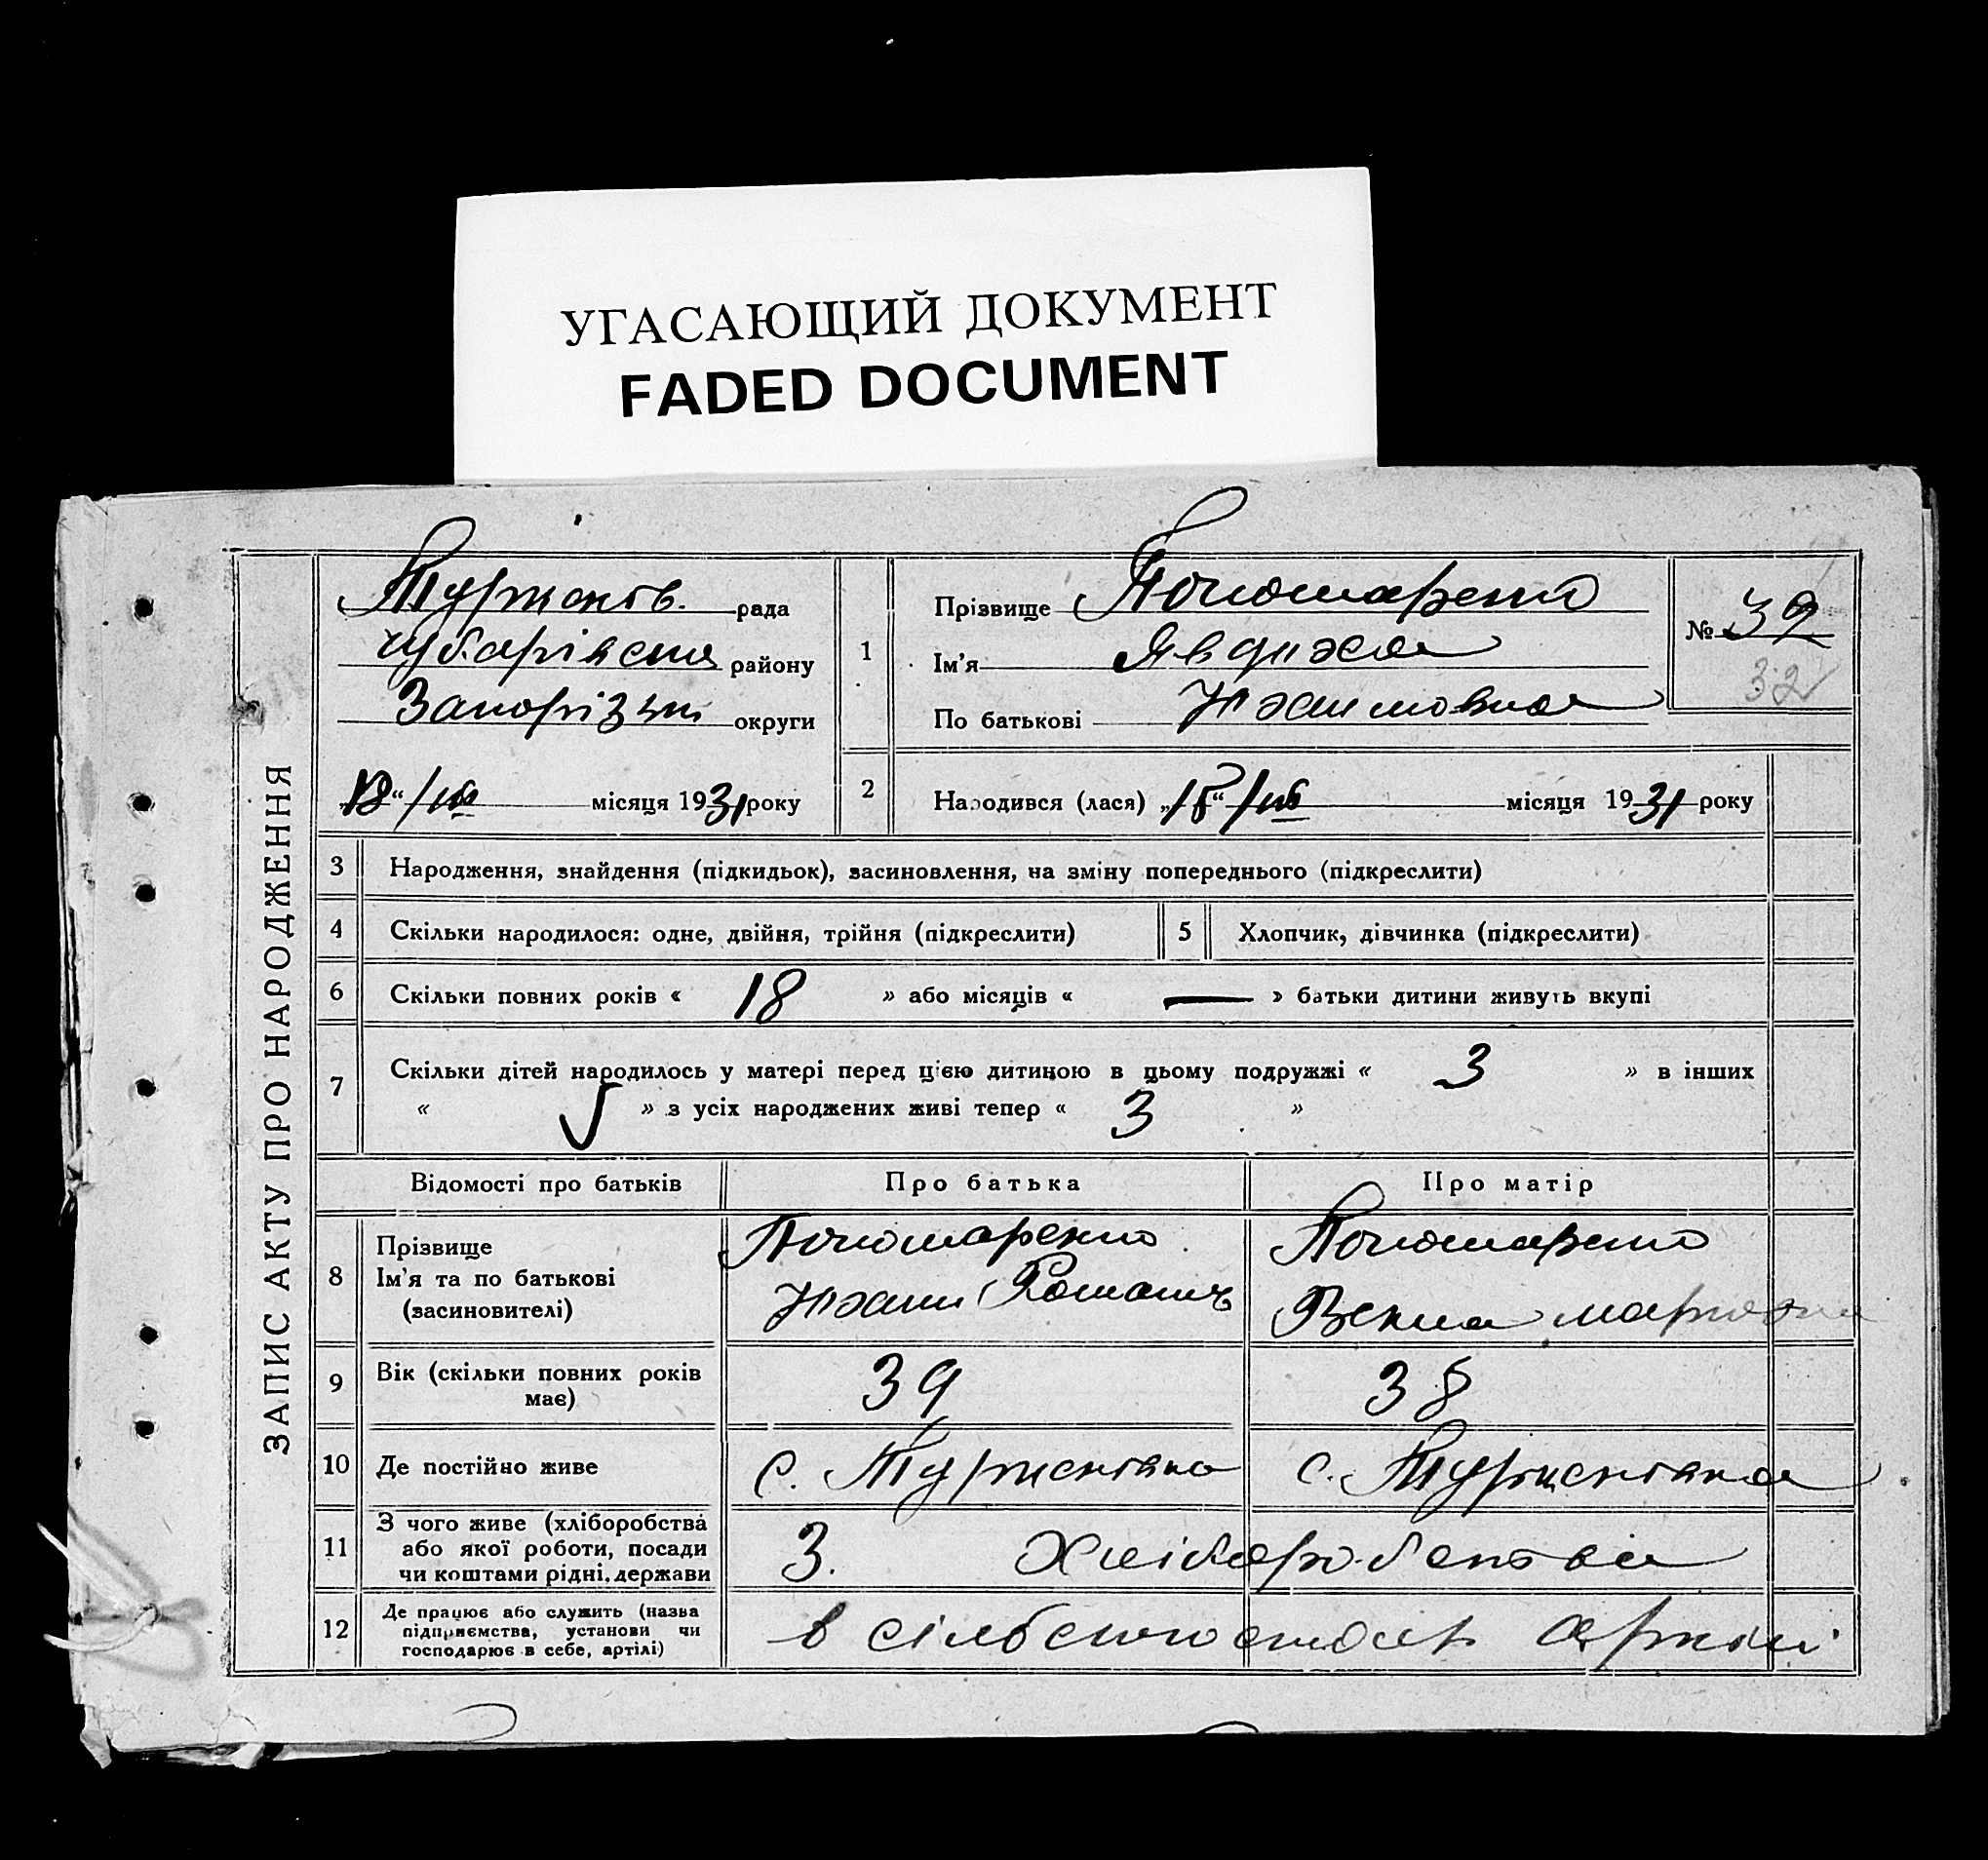 УГАСАЮЩИЙ ДОКУМЕНТ
FADED DOCUMENT
ЗАПИС АКТУ ПРО НАРОДЖЕННЯ
рада
Чубарівська району
Запорізьк округи
„18“ місяця 1931 року
1
Прізвище Пономаренко
Ім'я Явдоха
По батькові
№ 39
32
2
Народився (лася) „15“ місяця 1931 року
3 Народження, знайдення (підкидьок), засиновлення, на зміну попереднього (підкреслити)
4 Скільки народилося: одне, двійня, трійня (підкреслити)
5 Хлопчик, дівчинка (підкреслити)
6 Скільки повних років « 18 » або місяців « — » батьки дитини живуть вкупі
7 Скільки дітей народилось у матері перед цією дитиною в цьому подружжі « 3 » в інших
« » з усіх народжених живі тепер « 3 »
Відомості про батьків Про батька Про матір
8
Прізвище
Ім'я та по батькові
(засиновителі)
Пономаренко
Роман
Пономаренко
9
Вік (скільки повних років
має)
39
38
10 Де постійно живе
с.
с.
11
З чого живе (хліборобства
або якої роботи, посади
чи коштами рідні, держави
З. Хліборобства
12
Де працює або служить (назва
підприємства, установи чи
господарює в себе, артілі)
в сільського артілі